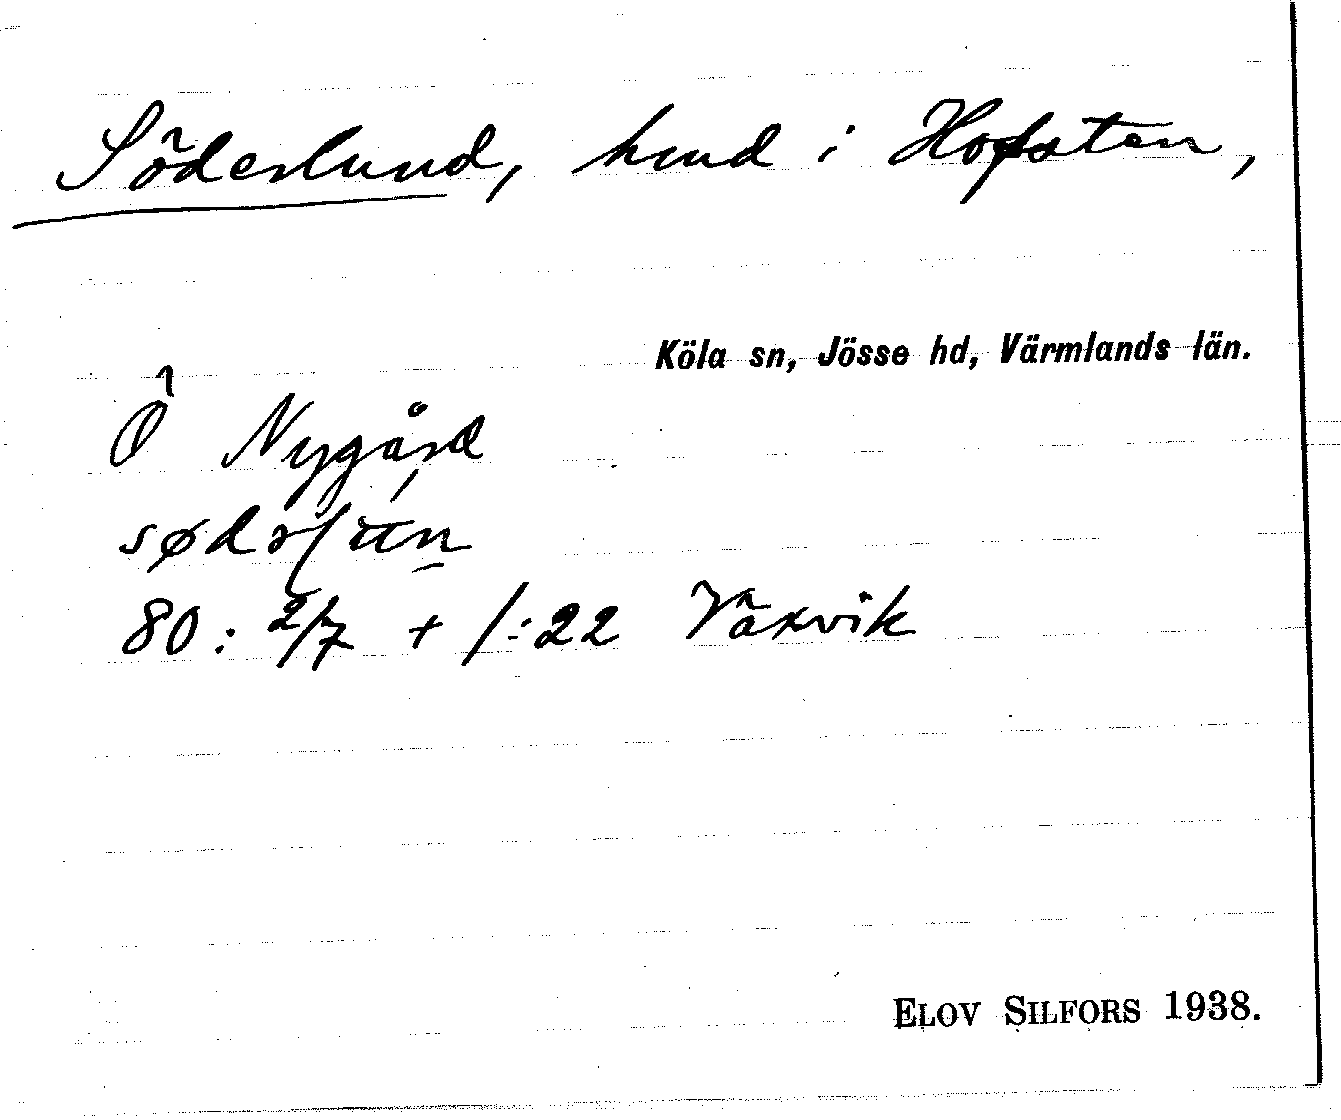 Söderlund, hmd i Hofsten,
Köla sn, Jösse hd, Värmlands län.
Ö Nygård
80: 2/7 + 1:22 Växvik
ELOV SILFORS 1938.